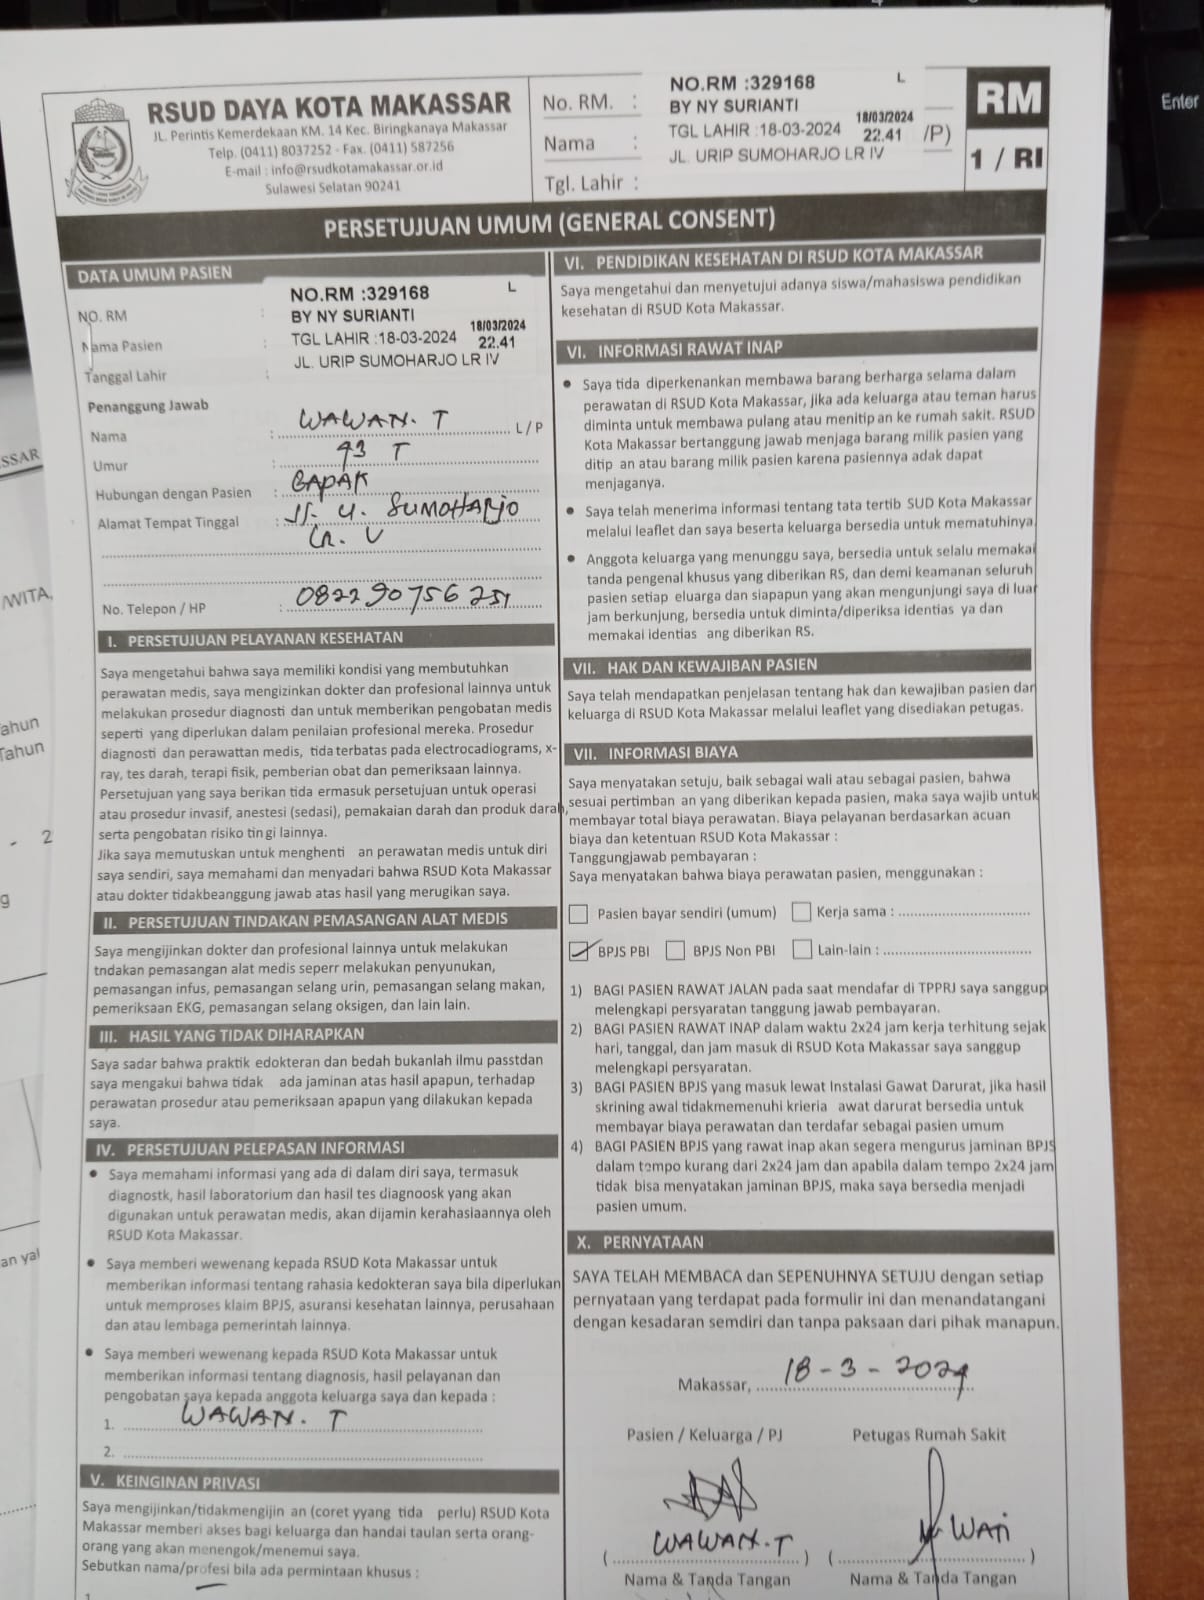 RSUD DAYA KOTA MAKASSAR
JL. Perintis Kemerdekaan KM. 14 Kec. Biringkanaya Makassar
Telp. (0411) 8037252 - Fax. (0411) 587256
E-mail : info@rsudkotamakassar.or.id
Sulawesi Selatan 90241
No. RM. :
Nama :
Tgl. Lahir :
NO.RM :329168 L
BY NY SURIANTI
TGL LAHIR :18-03-2024 18/03/2024 22.41 /P)
JL. URIP SUMOHARJO LR IV
RM
1 / RI
Enter
PERSETUJUAN UMUM (GENERAL CONSENT)
DATA UMUM PASIEN
NO. RM :
Nama Pasien :
Tanggal Lahir :
NO.RM :329168 L
BY NY SURIANTI
TGL LAHIR :18-03-2024 18/03/2024 22.41
JL. URIP SUMOHARJO LR IV
Penanggung Jawab
Nama : WAWAN. T L / P
Umur : 43 T
Hubungan dengan Pasien : BAPAK
Alamat Tempat Tinggal : Jl. U. SUMOHARJO
LR. V
No. Telepon / HP : 082290756251
I. PERSETUJUAN PELAYANAN KESEHATAN
Saya mengetahui bahwa saya memiliki kondisi yang membutuhkan
perawatan medis, saya mengizinkan dokter dan profesional lainnya untuk
melakukan prosedur diagnosti dan untuk memberikan pengobatan medis
seperti yang diperlukan dalam penilaian profesional mereka. Prosedur
diagnosti dan perawattan medis, tida terbatas pada electrocadiograms, x-
ray, tes darah, terapi fisik, pemberian obat dan pemeriksaan lainnya.
Persetujuan yang saya berikan tida ermasuk persetujuan untuk operasi
atau prosedur invasif, anestesi (sedasi), pemakaian darah dan produk darah,
serta pengobatan risiko tin gi lainnya.
Jika saya memutuskan untuk menghenti an perawatan medis untuk diri
saya sendiri, saya memahami dan menyadari bahwa RSUD Kota Makassar
atau dokter tidakbeanggung jawab atas hasil yang merugikan saya.
II. PERSETUJUAN TINDAKAN PEMASANGAN ALAT MEDIS
Saya mengijinkan dokter dan profesional lainnya untuk melakukan
tndakan pemasangan alat medis seperr melakukan penyunukan,
pemasangan infus, pemasangan selang urin, pemasangan selang makan,
pemeriksaan EKG, pemasangan selang oksigen, dan lain lain.
III. HASIL YANG TIDAK DIHARAPKAN
Saya sadar bahwa praktik edokteran dan bedah bukanlah ilmu passtdan
saya mengakui bahwa tidak ada jaminan atas hasil apapun, terhadap
perawatan prosedur atau pemeriksaan apapun yang dilakukan kepada
saya.
IV. PERSETUJUAN PELEPASAN INFORMASI
• Saya memahami informasi yang ada di dalam diri saya, termasuk
diagnostk, hasil laboratorium dan hasil tes diagnoosk yang akan
digunakan untuk perawatan medis, akan dijamin kerahasiaannya oleh
RSUD Kota Makassar.
• Saya memberi wewenang kepada RSUD Kota Makassar untuk
memberikan informasi tentang rahasia kedokteran saya bila diperlukan
untuk memproses klaim BPJS, asuransi kesehatan lainnya, perusahaan
dan atau lembaga pemerintah lainnya.
• Saya memberi wewenang kepada RSUD Kota Makassar untuk
memberikan informasi tentang diagnosis, hasil pelayanan dan
pengobatan saya kepada anggota keluarga saya dan kepada :
1. WAWAN. T
2.
V. KEINGINAN PRIVASI
Saya mengijinkan/tidakmengijin an (coret yyang tida perlu) RSUD Kota
Makassar memberi akses bagi keluarga dan handai taulan serta orang-
orang yang akan menengok/menemui saya.
Sebutkan nama/profesi bila ada permintaan khusus :
VI. PENDIDIKAN KESEHATAN DI RSUD KOTA MAKASSAR
Saya mengetahui dan menyetujui adanya siswa/mahasiswa pendidikan
kesehatan di RSUD Kota Makassar.
VI. INFORMASI RAWAT INAP
• Saya tida diperkenankan membawa barang berharga selama dalam
perawatan di RSUD Kota Makassar, jika ada keluarga atau teman harus
diminta untuk membawa pulang atau menitip an ke rumah sakit. RSUD
Kota Makassar bertanggung jawab menjaga barang milik pasien yang
ditip an atau barang milik pasien karena pasiennya adak dapat
menjaganya.
• Saya telah menerima informasi tentang tata tertib SUD Kota Makassar
melalui leaflet dan saya beserta keluarga bersedia untuk mematuhinya
• Anggota keluarga yang menunggu saya, bersedia untuk selalu memakai
tanda pengenal khusus yang diberikan RS, dan demi keamanan seluruh
pasien setiap eluarga dan siapapun yang akan mengunjungi saya di luar
jam berkunjung, bersedia untuk diminta/diperiksa identias ya dan
memakai identias ang diberikan RS.
VII. HAK DAN KEWAJIBAN PASIEN
Saya telah mendapatkan penjelasan tentang hak dan kewajiban pasien dar
keluarga di RSUD Kota Makassar melalui leaflet yang disediakan petugas.
VII. INFORMASI BIAYA
Saya menyatakan setuju, baik sebagai wali atau sebagai pasien, bahwa
sesuai pertimban an yang diberikan kepada pasien, maka saya wajib untuk
membayar total biaya perawatan. Biaya pelayanan berdasarkan acuan
biaya dan ketentuan RSUD Kota Makassar :
Tanggungjawab pembayaran :
Saya menyatakan bahwa biaya perawatan pasien, menggunakan :
Pasien bayar sendiri (umum) Kerja sama :
BPJS PBI BPJS Non PBI Lain-lain :
1) BAGI PASIEN RAWAT JALAN pada saat mendafar di TPPRJ saya sanggup
melengkapi persyaratan tanggung jawab pembayaran.
2) BAGI PASIEN RAWAT INAP dalam waktu 2x24 jam kerja terhitung sejak
hari, tanggal, dan jam masuk di RSUD Kota Makassar saya sanggup
melengkapi persyaratan.
3) BAGI PASIEN BPJS yang masuk lewat Instalasi Gawat Darurat, jika hasil
skrining awal tidakmemenuhi krieria awat darurat bersedia untuk
membayar biaya perawatan dan terdafar sebagai pasien umum
4) BAGI PASIEN BPJS yang rawat inap akan segera mengurus jaminan BPJS
dalam tempo kurang dari 2x24 jam dan apabila dalam tempo 2x24 jam
tidak bisa menyatakan jaminan BPJS, maka saya bersedia menjadi
pasien umum.
X. PERNYATAAN
SAYA TELAH MEMBACA dan SEPENUHNYA SETUJU dengan setiap
pernyataan yang terdapat pada formulir ini dan menandatangani
dengan kesadaran semdiri dan tanpa paksaan dari pihak manapun.
Makassar, 18-3-2024
Pasien / Keluarga / PJ Petugas Rumah Sakit
( WAWAN.T ) ( WATI )
Nama & Tanda Tangan Nama & Tanda Tangan